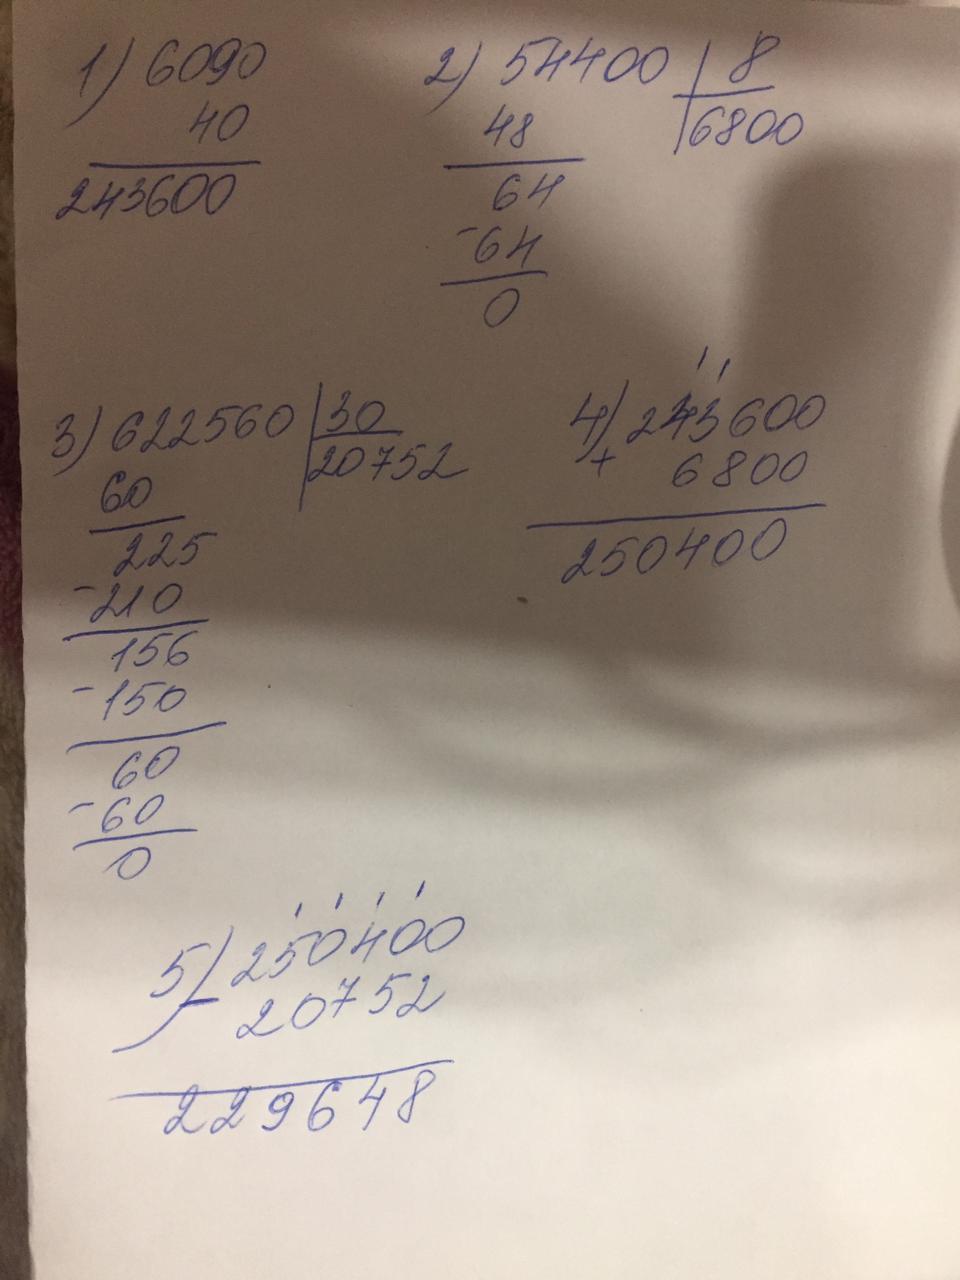 1) 6090
40
243600
2) 54400 | 8
48 6800
64
- 64
0
3) 622560 | 30
60 20752
225
- 210
156
- 150
60
- 60
0
4) 243600
+ 6800
250400
5) 250400
- 20752
229648